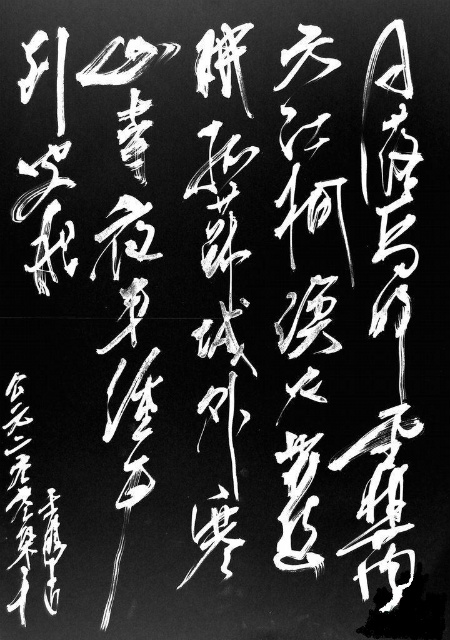 月落烏啼霜滿
天江楓漁火對愁
眠姑蘇城外寒
山寺夜半鐘聲
到客船
公元二